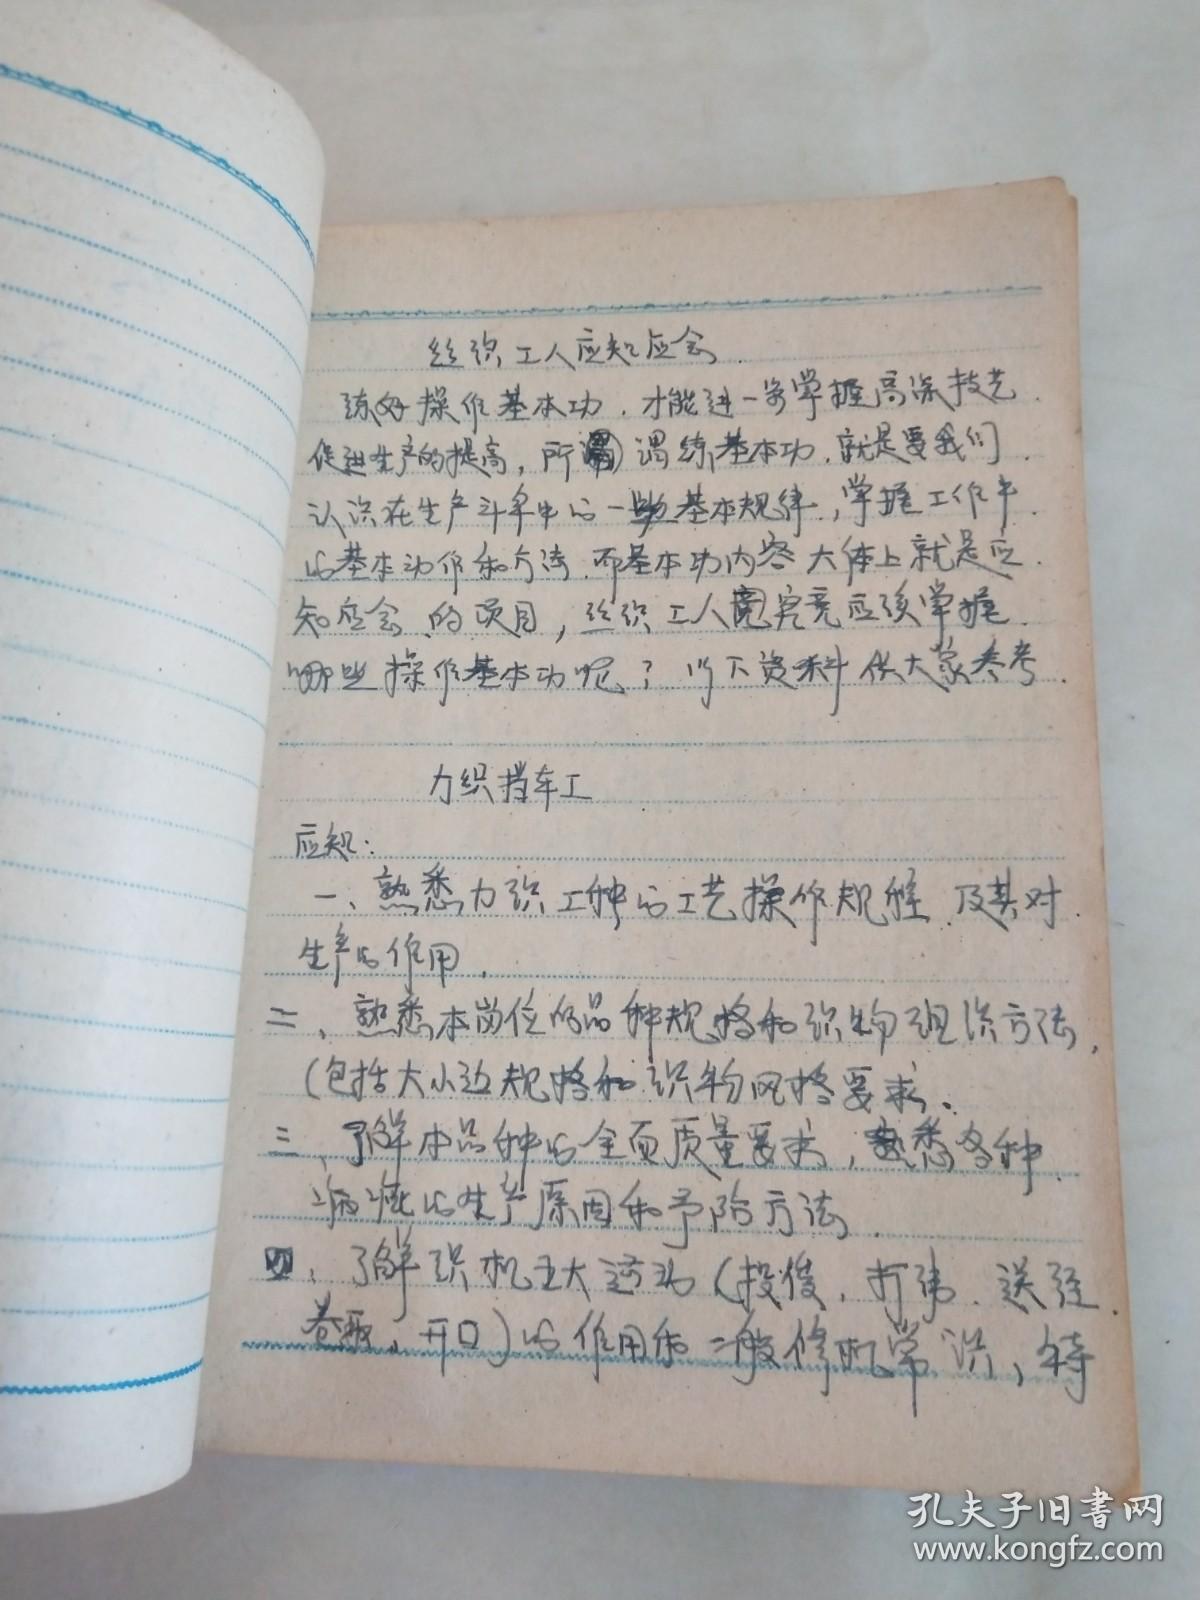 丝织工人应知应会.
练好操作基本功.才能进一步掌握高深技艺.
促进生产的提高,所谓练基本功.就是要我们.
认识在生产斗争中的一些基本规律,掌握工作中.
的基本动作和方法.而基本功内容大体上就是应.
知应会的项目,丝织工人究竟应该掌握.
哪些操作基本功呢?以下资料供大家参考.
力织挡车工
应知:
一、熟悉力织工种的工艺操作规程及其对.
生产的作用.
二、熟悉本岗位的品种规格和织物组织方法,
(包括大小边规格和织物风格要求.
三、了解本品种的全面质量要求,熟悉各种.
病疵的生产原因和予防方法.
四、了解织机五大运动(投梭,打纬.送经.
卷取,开口)的作用和一般修机常识,特
孔夫子旧书网
www.kongfz.com